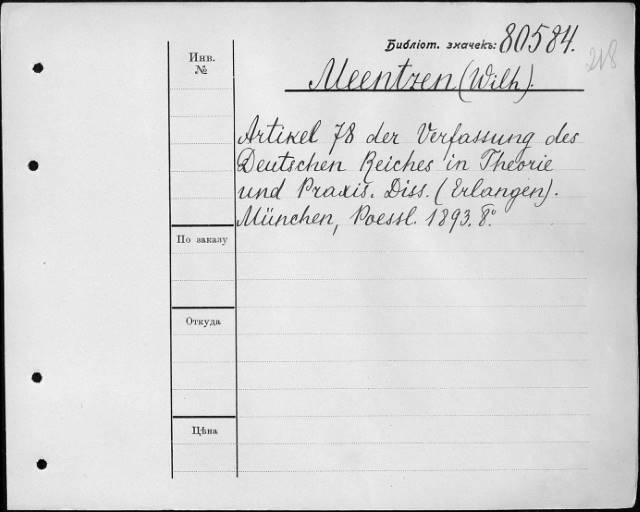 Библіот. значекъ: 80584.
218
Инв.
№
Meentzen (Wilh).
Artikel 78 der Verfassung des
Deutschen Reiches in Theorie
und Praxis. Diss. (Erlangen).
München, Poessl. 1893. 8°.
По заказу
Откуда
Цѣна